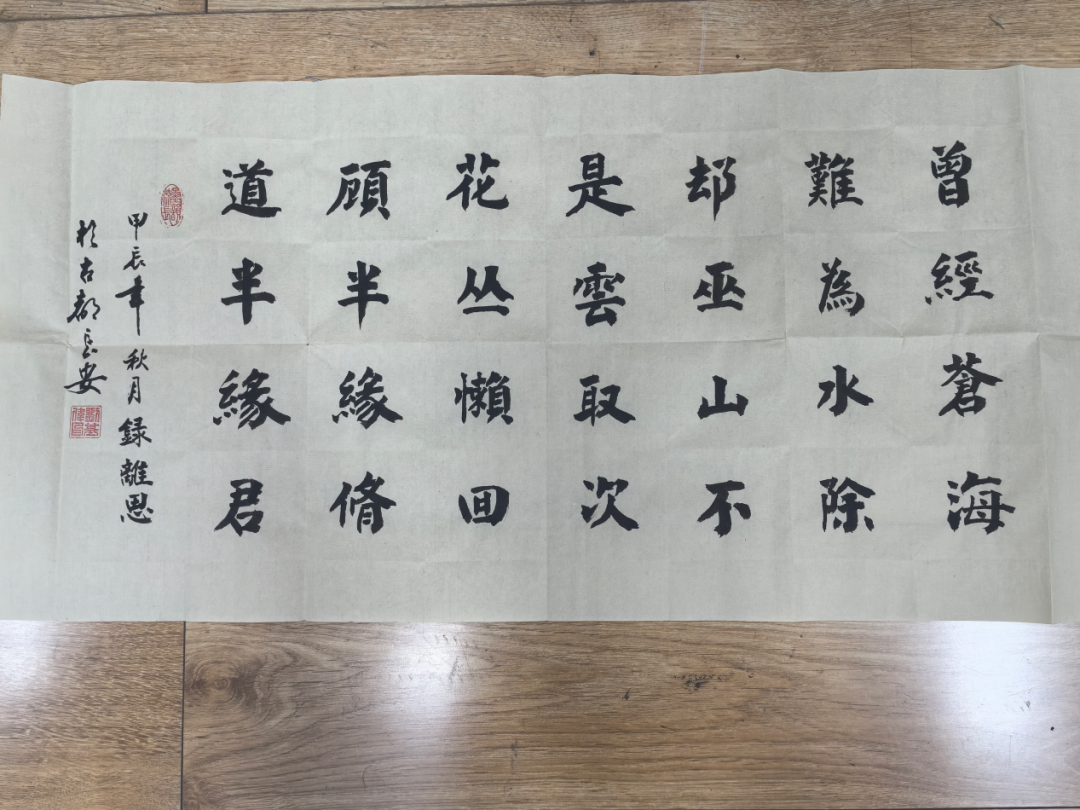 曾經蒼海
難為水除
却巫山不
是雲取次
花丛懶回
顧半緣脩
道半緣君
甲辰年秋月録離思
於古都長安